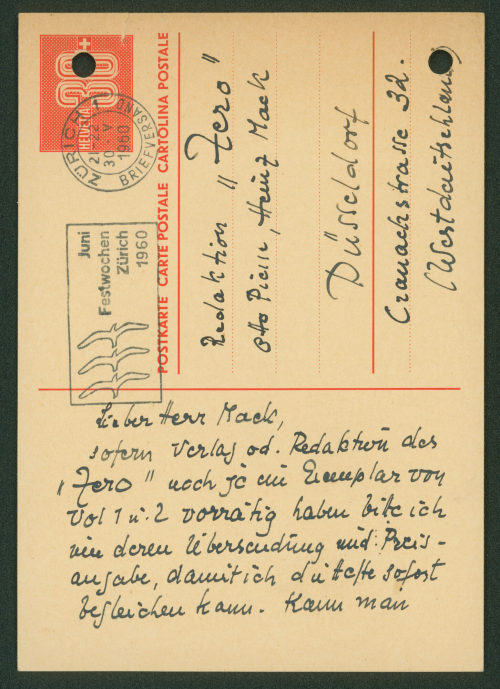 30+
HELVETIA
ZÜRICH 1
21-22
30. V
1960
BRIEFVERSAND
Juni
Festwochen
Zürich
1960
POSTKARTE CARTE POSTALE CARTOLINA POSTALE
Redaktion "Zero"
Otto Piene, Heinz Mack
Düsseldorf
Cranachstrasse 32.
(Westdeutschland)
Lieber Herr Mack,
sofern Verlag od. Redaktion des
"Zero" noch je ein Exemplar von
Vol 1 u. 2 vorrätig haben bitte ich
um deren Übersendung mit Preis-
angabe, damit ich die Hefte sofort
begleichen kann. Kann man